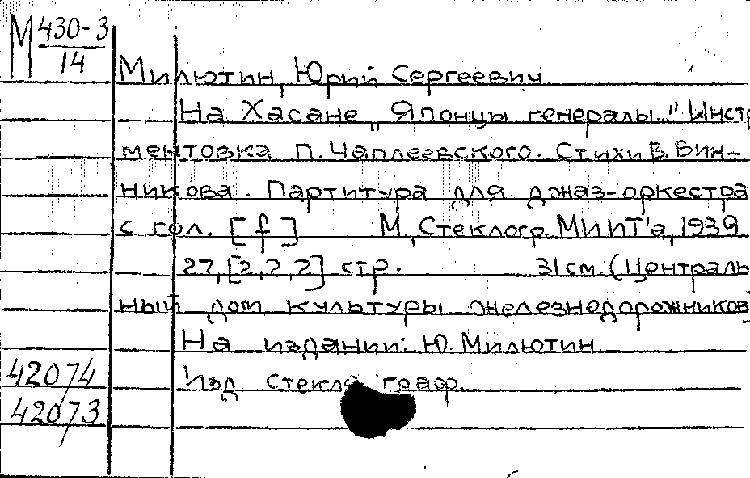 М 430-3
14
Милютин, Юрий Сергеевич
На Хасане „Японцы генералы." Инстр
ментовка П. Чаплеевского. Стихи В. Вин-
никова. Партитура для джаз-оркестра
с гол. [f] М., Стеклогр. МИИТ'а, 1939
27, [2,2,2] стр. 31 см. (Централь
ный дом культуры железнодорожников
На издании: Ю. Милютин
42074 Изд. стекло граф.
42073